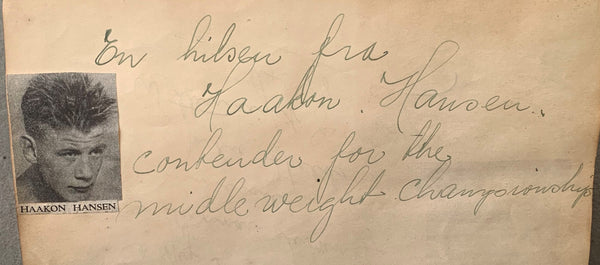 En hilsen fra
Haakon Hansen.
contender for the
midleweight championship
HAAKON HANSEN